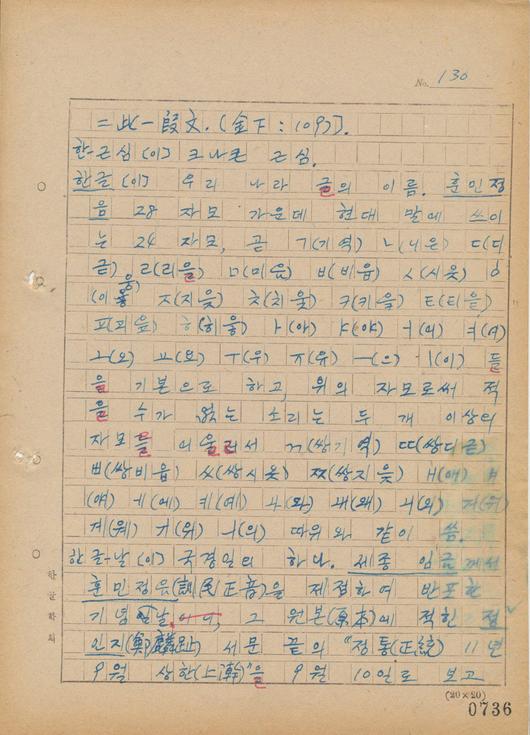 No. 130
= 此一段文. (金下 : 109).
한-근심 [이] 크나큰 근심.
한글 [이] 우리 나라 글의 이름. 훈민정
음 28 자모 가운데 현대 말에 쓰이
는 24 자모, 곧 ㄱ(기역) ㄴ(니은) ㄷ(디
귿) ㄹ(리을) ㅁ(미음) ㅂ(비읍) ㅅ(시옷) ㅇ
(이응) ㅈ(지읒) ㅊ(치읓) ㅋ(키읔) ㅌ(티읕)
ㅍ(피읖) ㅎ(히읗) ㅏ(아) ㅑ(야) ㅓ(어) ㅕ(여)
ㅗ(오) ㅛ(요) ㅜ(우) ㅠ(유) ㅡ(으) ㅣ(이) 들
을 기본으로 하고, 위의 자모로써 적
을 수가 없는 소리는 두 개 이상의
자모를 어울려서 ㄲ(쌍기역) ㄸ(쌍디귿)
ㅃ(쌍비읍) ㅆ(쌍시옷) ㅉ(쌍지읒) ㅐ(애) ㅒ
(얘) ㅔ(에) ㅖ(예) ㅘ(와) ㅙ(왜) ㅚ(외) ㅝ(워)
ㅞ(웨) ㅟ(위) ㅢ(의) 따위와 같이 씀.
한글-날 [이] 국경일의 하나. 세종 임금께서
훈민정음(訓民正音)을 제정하여 반포한
기념날, 그 원본(原本)에 적힌 정
인지(鄭麟趾) 서문 끝의 "정통(正統) 11년
9월 상한(上澣)"을 9월 10일로 보고
한글학회
(20×20)
0736